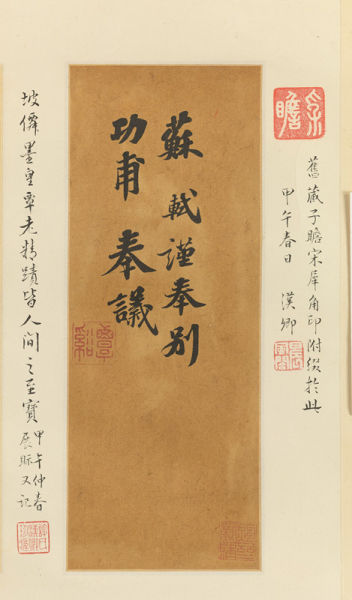 舊藏子瞻宋犀角印附綴於此
甲午春日 漢卿
蘇軾謹奉別
功甫奉議
坡僊墨皇覃老精蹟皆人間之至寶
甲午仲春
展眎又記